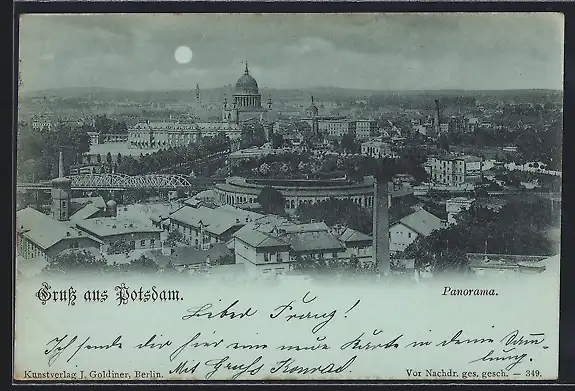 Gruß aus Potsdam.
Panorama.
Lieber Franz!
Ich sende dir hier eine neue Karte in deine Samm=
lung,
Mit Gruß Konrad.
Kunstverlag J. Goldiner, Berlin.
Vor Nachdr. ges. gesch. — 349.